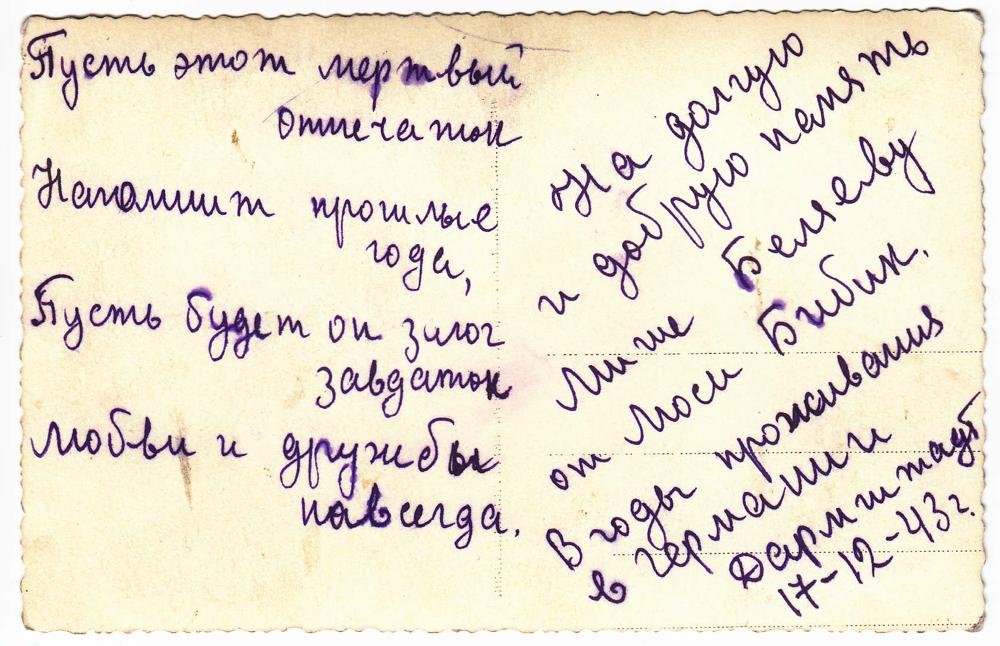 Пусть этот мертвый
отпечаток
Напомнит прошлые
года,
Пусть будет он залог
завдаток
Любви и дружбы
навсегда.
На долгую
и добрую память
Мише Беляеву
от Моси Бибик.
В годы проживания
в германии
Дармштадт
17-12-43 г.